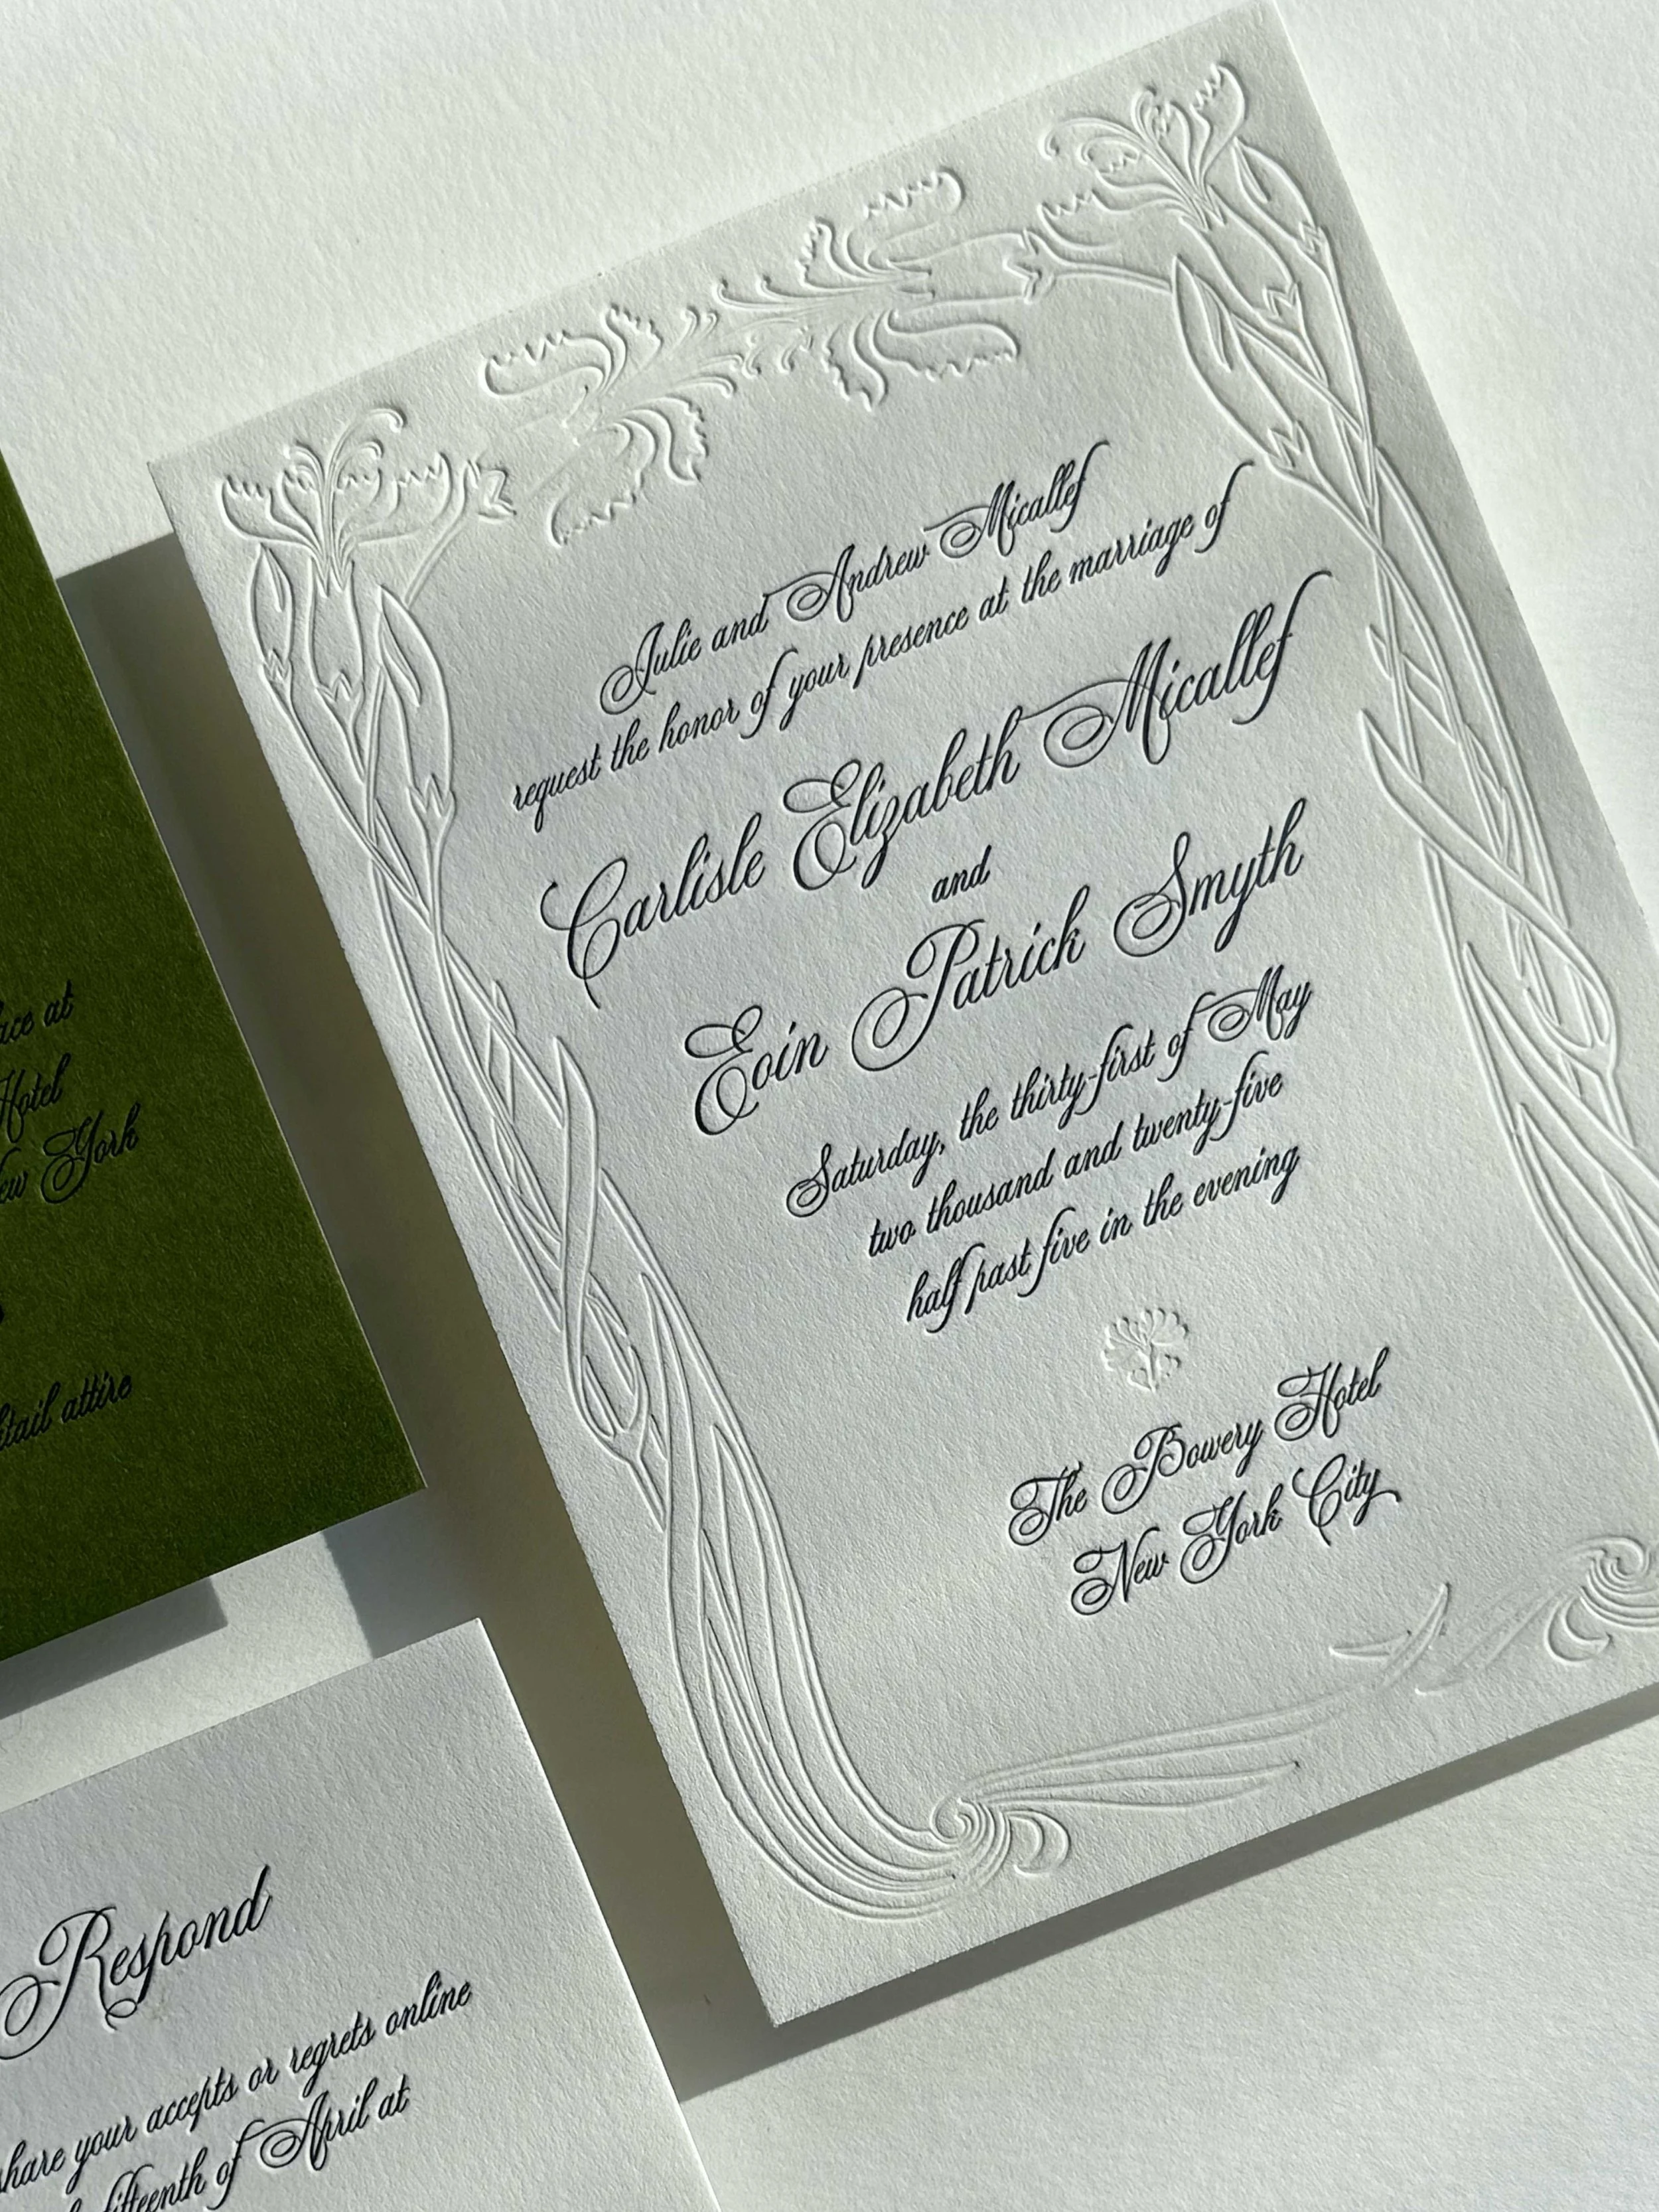 Julie and Andrew Micallef
request the honor of your presence at the marriage of
Carlisle Elizabeth Micallef
and
Eoin Patrick Smyth
Saturday, the thirty-first of May
two thousand and twenty-five
half past five in the evening
The Bowery Hotel
New York City
at
Hotel
York
attire
Respond
share your accepts or regrets online
fifteenth of April at